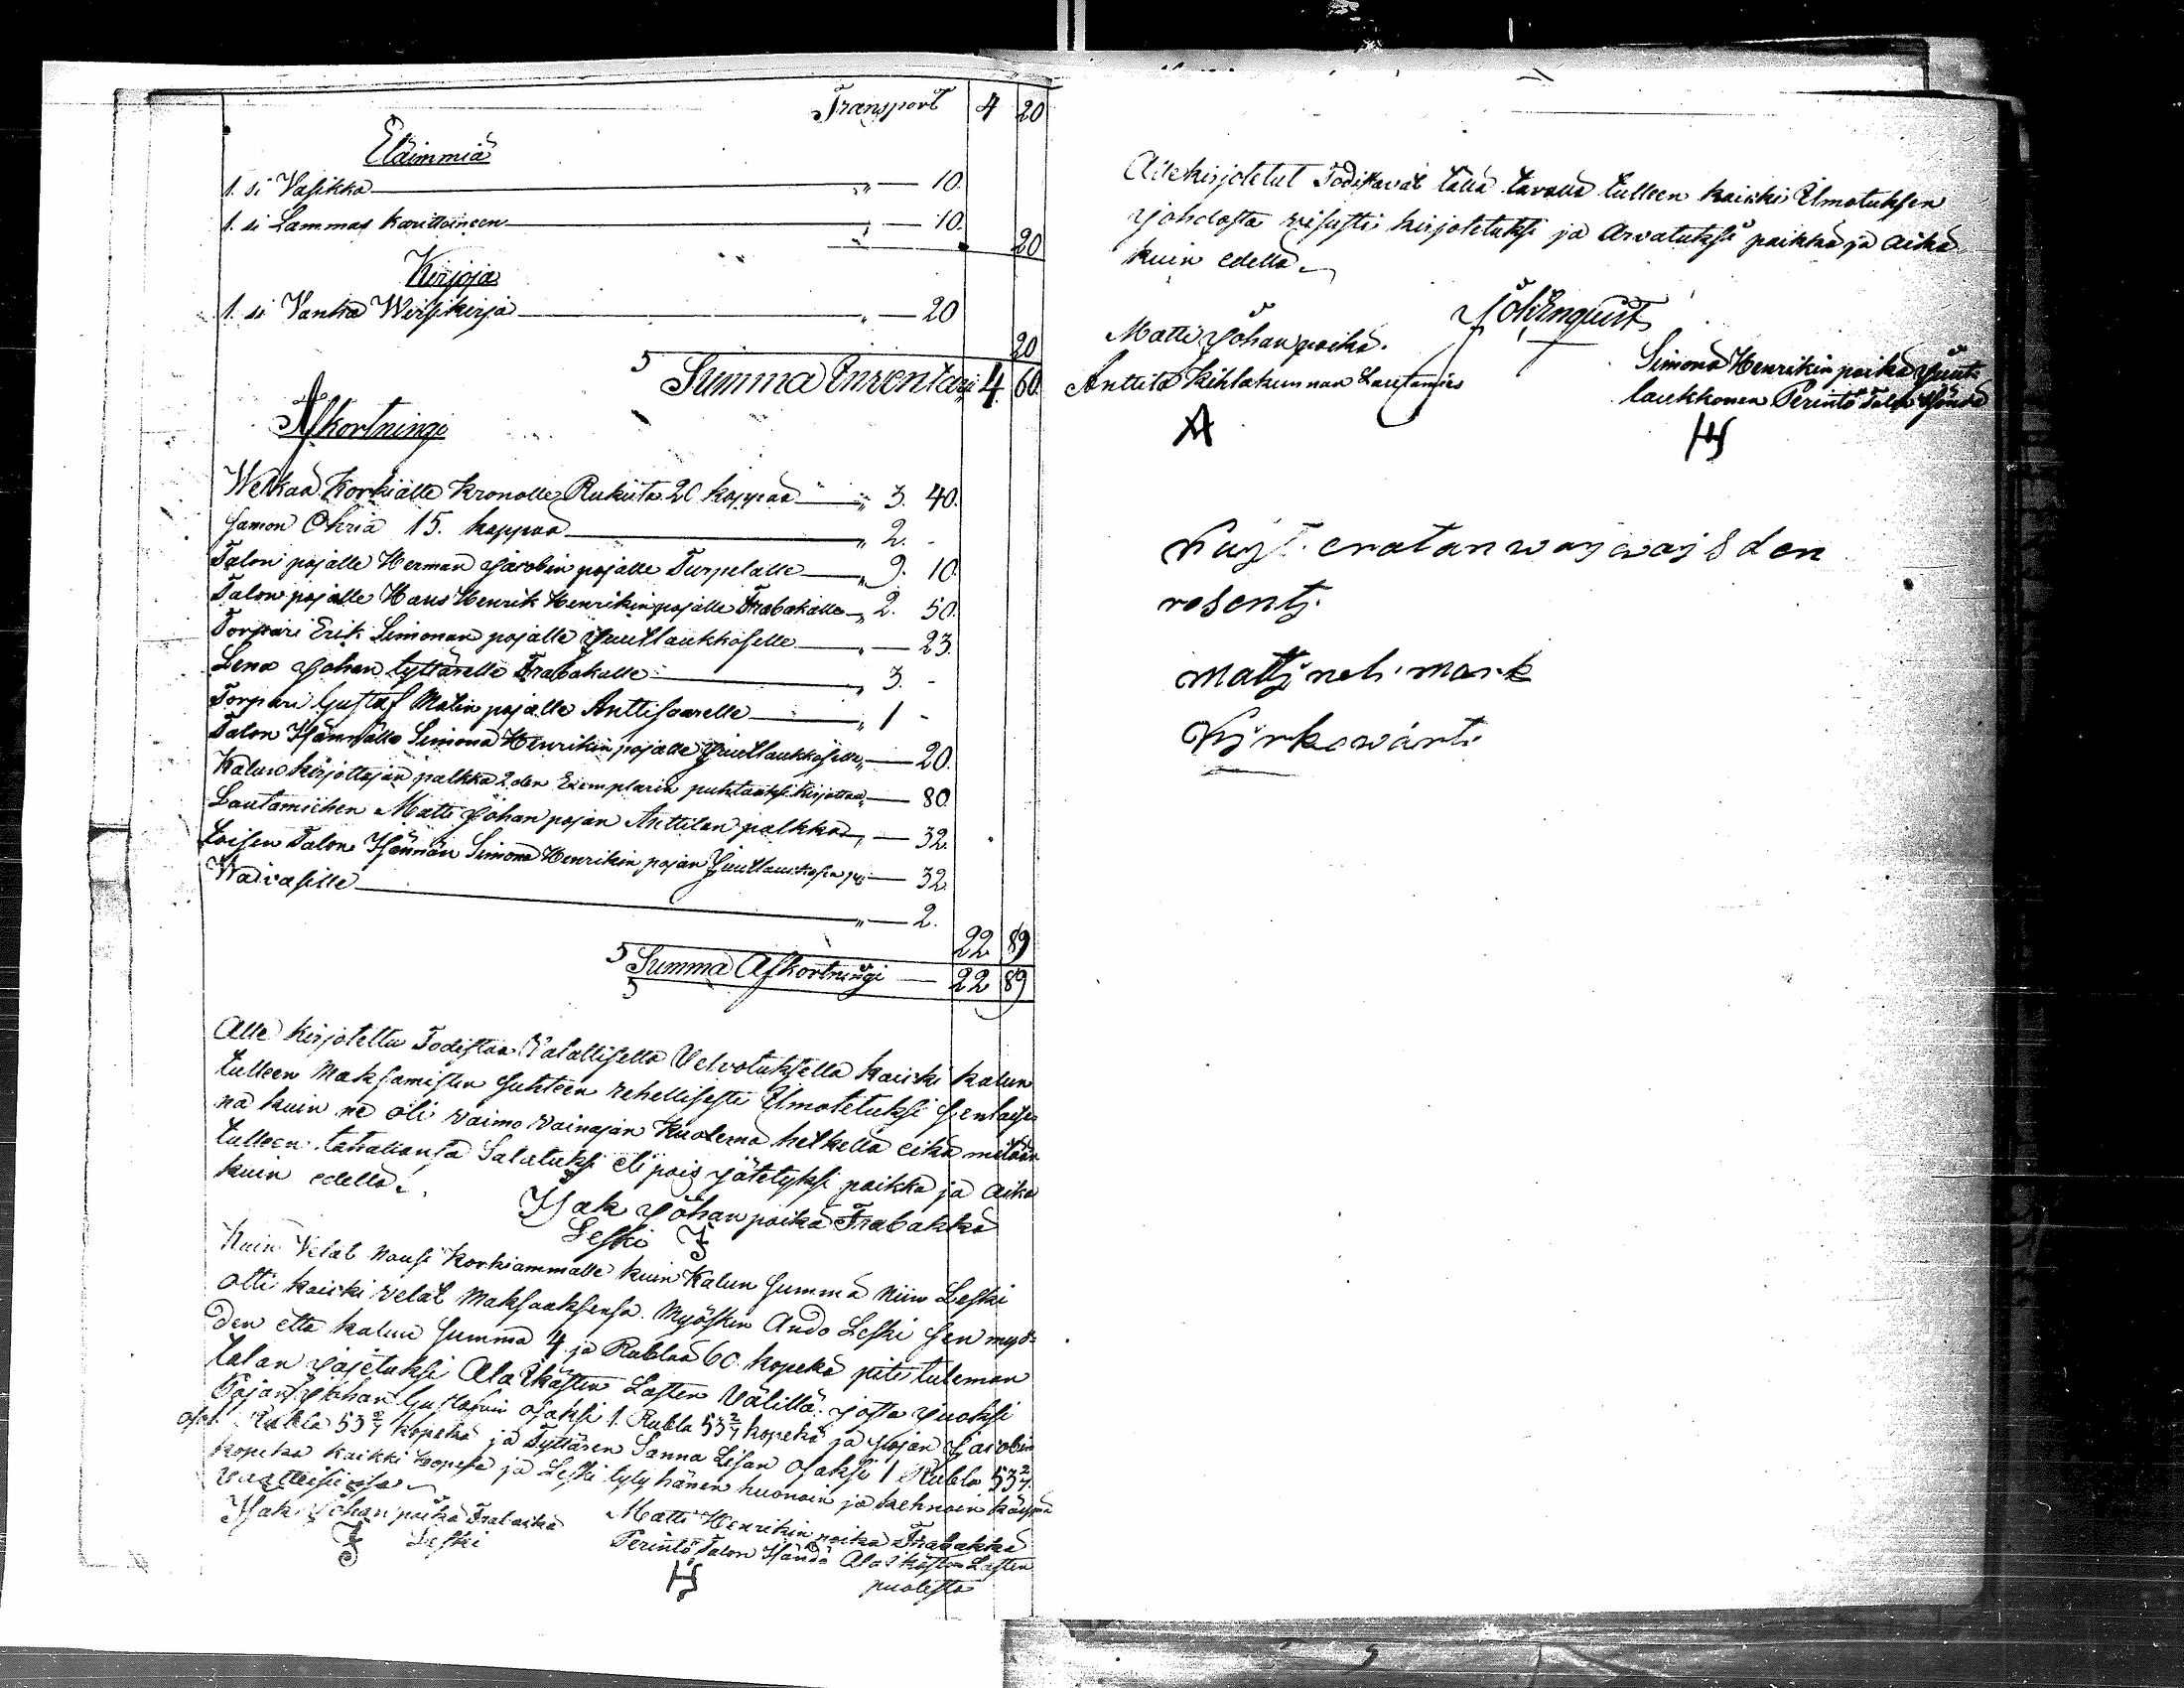 Transport 4 20
Eläimmiä
1. si Vasikka „ — 10.
1. si Lammas Karittoineen „ — 10.
20
Kirjoja
1. si Vanha Wirsikirja „ — 20
20
Summa Inventarii 4. 60.
Afkortningi
Welkaa Korkialle Kronolle Rukiita 20 kappaa „ 3. 40.
samon Ohria 15. kappaa „ 2. -
Talon pojalle Herman Jacobin pojalle Turpelalle „ 9. 10.
Talon pojalle Hans Henrik Henrikin pojalle Frabakalle „ 2. 50.
Torppari Erik Simonan pojalle Juutlaukkoselle „ — 23.
Lena Johan tyttärelle Frabakalle „ 3. -
Torpari Gustaf Matin pojalle Anttisaarelle „ 1 -
Talon Isännälle Simona Henrikin pojalle „ — 20.
Kalun kirjottajan palkka 2 den Exemplarin puhtaaksi kirjottaa „ — 80
Lautamiehen Matti Johan pojan Anttilan palkka „ — 32.
toisen Talon Isännän Simona Henrikin pojan „ — 32.
Waivasille „ — 2.
22 89
Summa Afkortningi — 22 89
Alle kirjotettu Todistaa Valallisella Velvotuksella kaicki kalun
tulleen Maksamisten suhteen rehellisesti Ilmotetuksi senlaise
na kuin ne oli vaimo vainajan Kuolema hetkellä eikä mitään
tulleen tahallansa Salatuksi eli pois jätetyksi paikka ja aika
kuin edellä.
Isak Johan poika Frabakka
Leski
Kuin Velat nousi korkiammalle kuin Kalun summa niin Leski
otti kaicki velat Maksaaksensa. Myöskin Ando Leski sen myö-
den että kalun summa 4 ja Rublaa 60 kopeka piti tuleman
talan jajetuksi Ala Ikästen Lasten Välillä. josta juoksi
Pojan Johan Gustafvin osaksi 1. Rubla 53 2/7 kopeka ja pojan Jacobin
osal Rubla 53 2/7 kopeka ja Tyttären Sanna Lisan osaksi 1 Rubla 53 2/7
kopeka kaikki hopesa ja Leski tyty hänen huonoin ja kehnoin käypä
vaatteisiinsa
Isak Johan poika Frabakka Matti Henrikin poika Frabakka
Leski Perintö Talon Isändä Ala Ikästen Lasten
puolesta
Allekirjotetut Todistavat tällä tavalla tulleen kaicki Ilmotuksen
johdosta visusti kirjotetuksi ja Arvatuksi paikka ja aika
kuin edellä
Joh Enquist
Matti Johan poika.
Anttila Kihlakunnan Lautamies
Simona Henrikin poika Juut-
laukkonen Perintö Talon Isändä
waiwaisden
rosentj.
mattj neh mark
Kjrkowärti